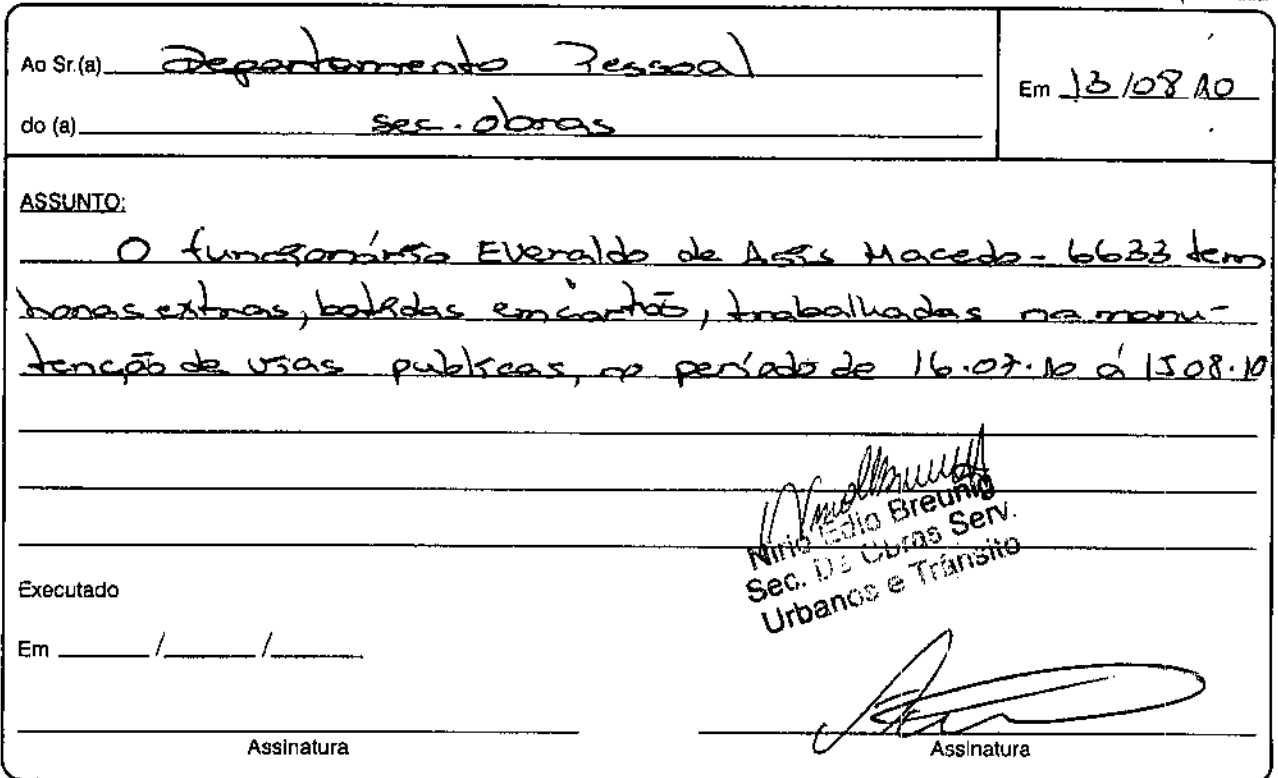 Ao Sr.(a) Departamento Pessoal
Em 13/08/10
do (a) sec. obras
ASSUNTO:
O funcionário Everaldo de Assis Macedo - 6633 tem
horas extras, batidas em cartão, trabalhadas na manu-
tenção de vias publicas, no período de 16.07.10 á 15.08.10
Breunig
Sec. De Obras Serv.
Urbanos e Trânsito
Executado
Em ____/____/____
Assinatura
Assinatura